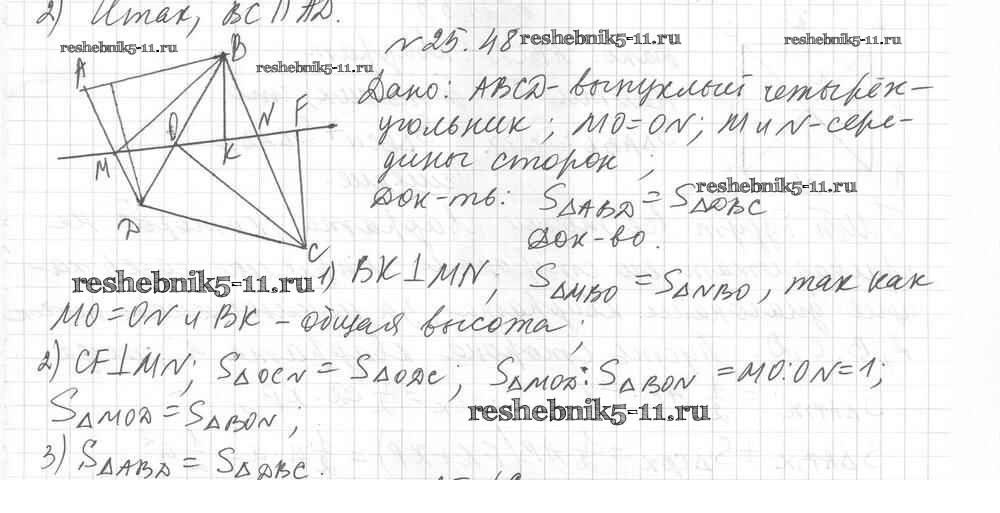 2) Итак, BC || AD.
reshebnik5-11.ru
N 25.48 reshebnik5-11.ru
reshebnik5-11.ru
reshebnik5-11.ru
A
B
O
K
N
F
M
D
C
Дано: ABCD - выпуклый четырёх-
угольник; MO=ON; M и N - сере-
дины сторон;
Док-ть: S△ABD = S△DBC
reshebnik5-11.ru
Док-во.
reshebnik5-11.ru
1) BK⊥MN; S△MBO = S△NBO, так как
MO=ON и BK - общая высота;
2) CF⊥MN; S△OCN = S△ODC; S△MOD : S△BON = MO:ON=1;
S△MOD = S△BON;
reshebnik5-11.ru
3) S△ABD = S△DBC.